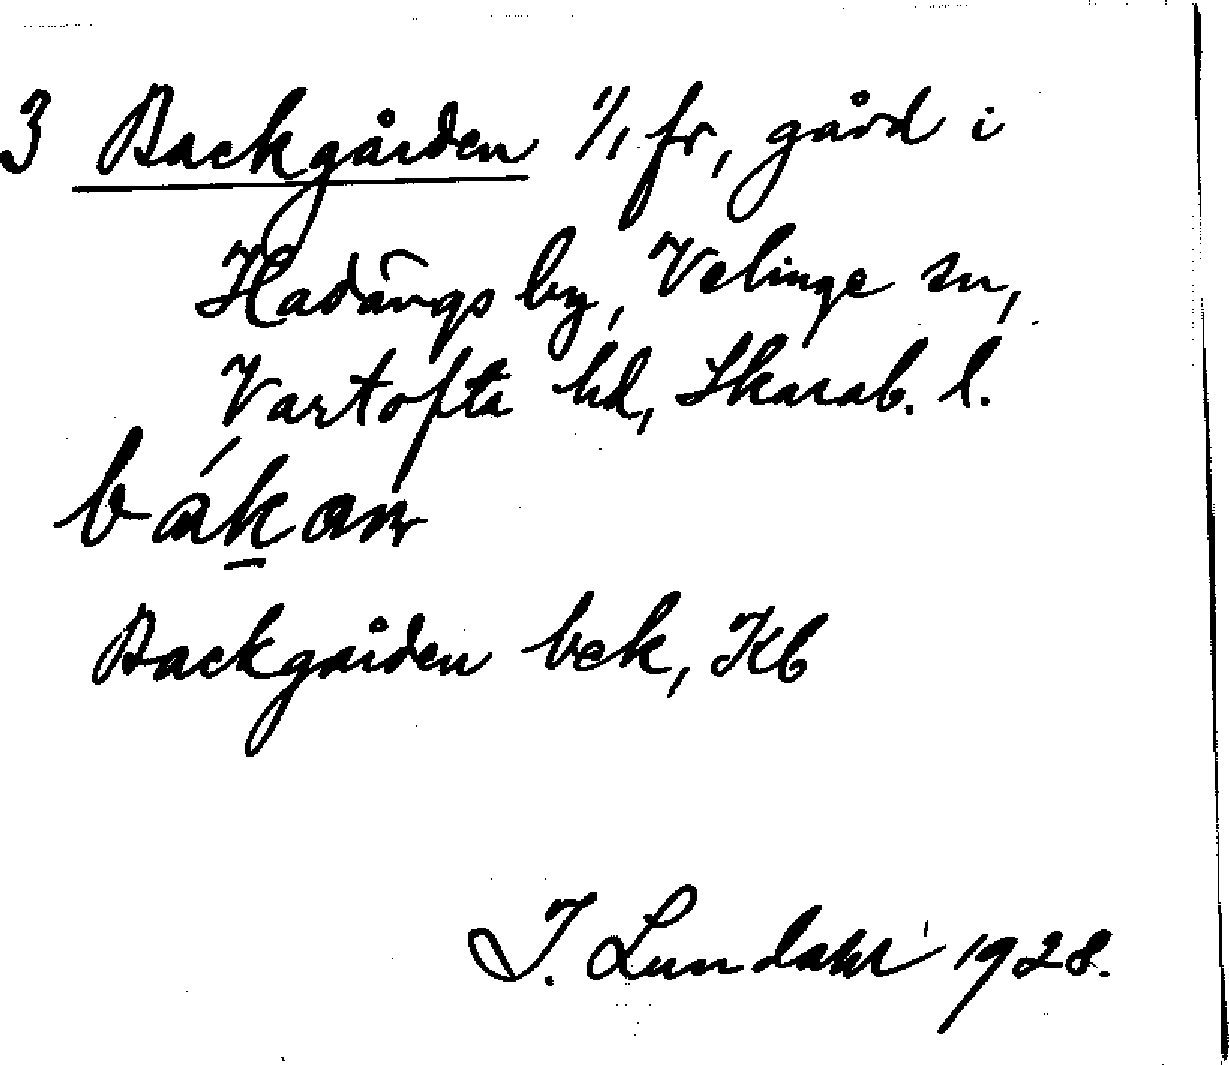 3 Backgården 1/1 fr, gård i
Hadängs by, Velinge sn,
Vartofta hd, Skarab. l.
Backgården bek, Kb
I. Lundahl 1928.